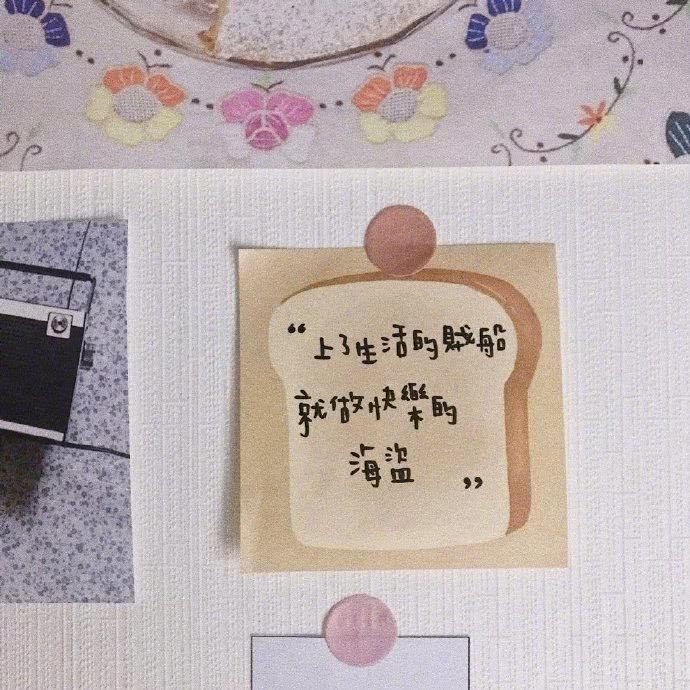 “上了生活的賊船
就做快樂的
海盜”